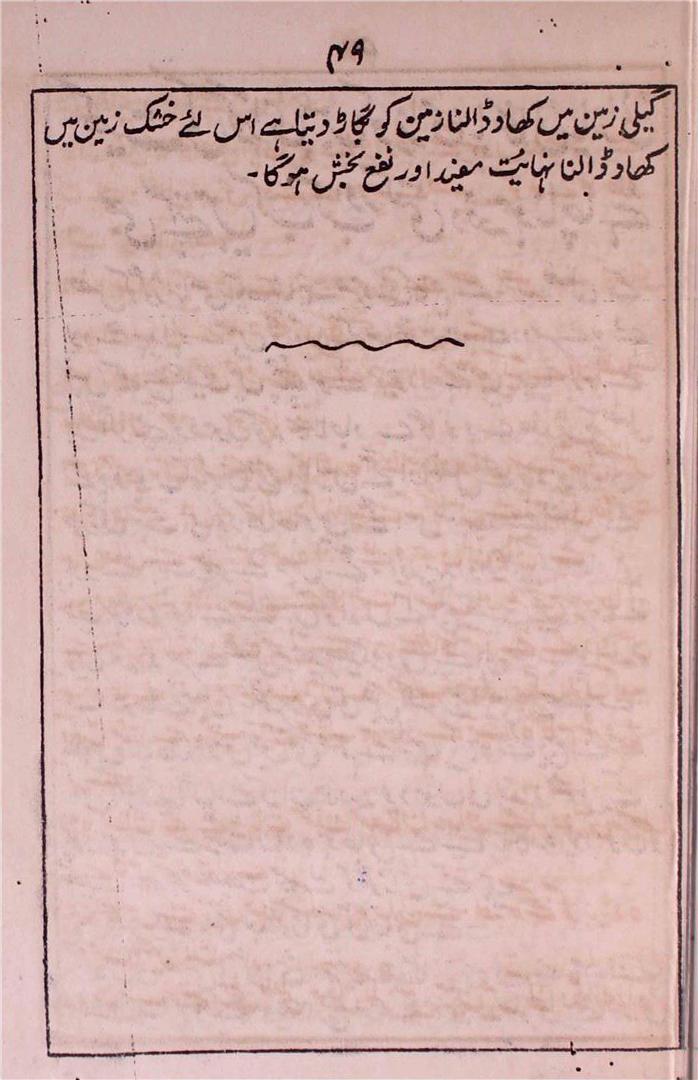 ۴۹
گیلی زمین میں کھاد ڈالنا زمین کو بگاڑ دیتا ہے اس لئے خشک زمین میں
کھاد ڈالنا نہایت مفید اور نفع بخش ہوگا۔